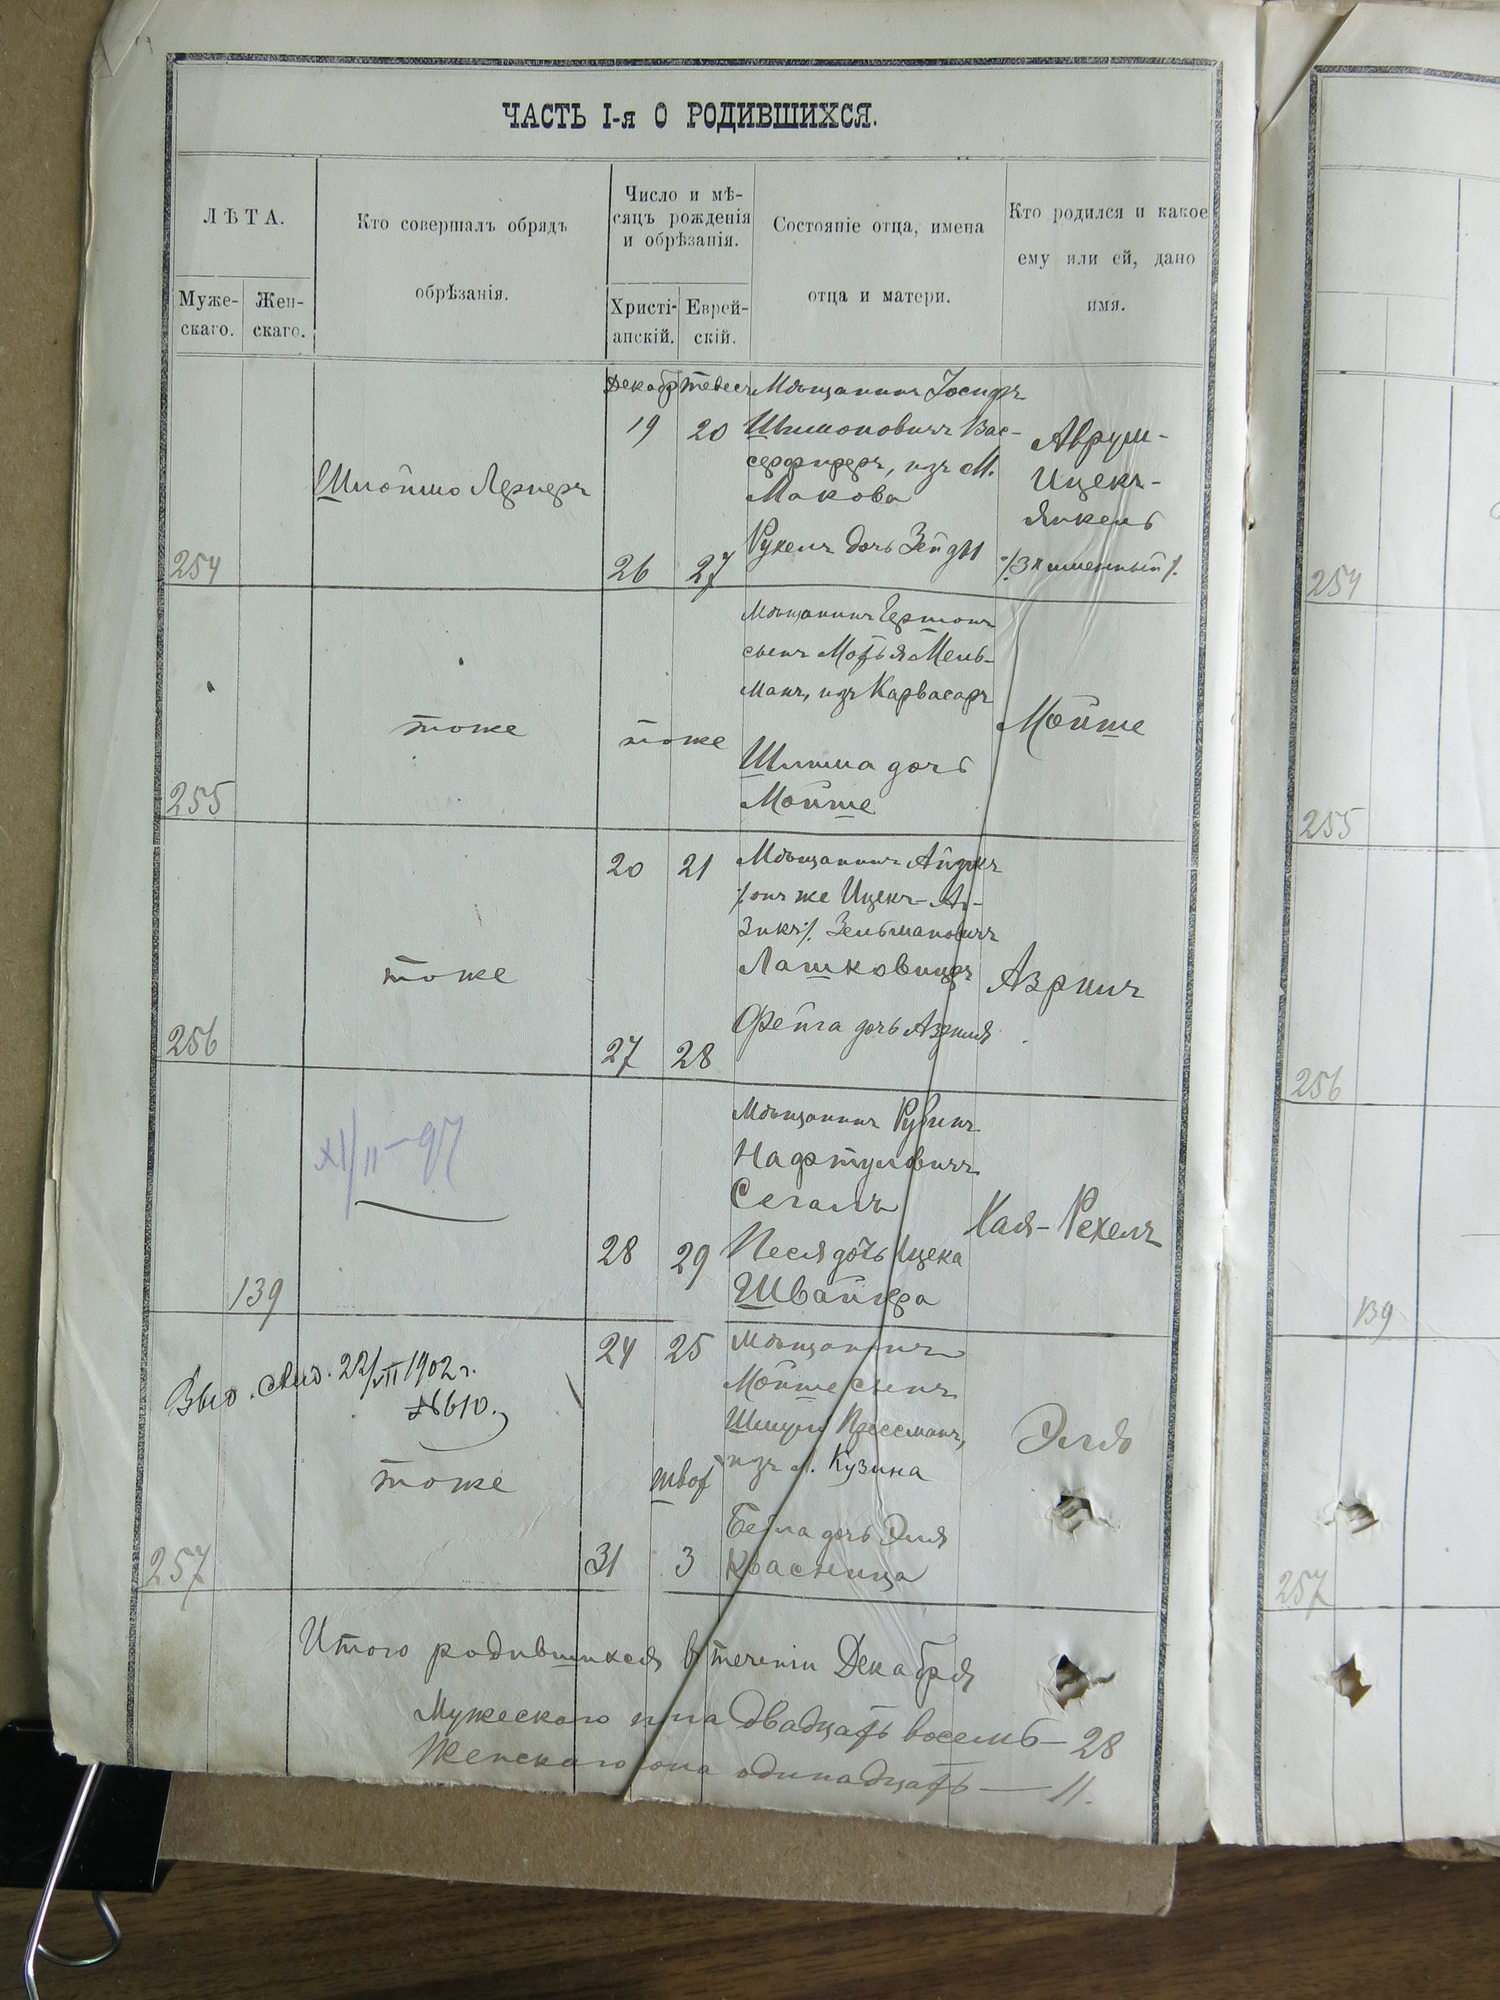 ЧАСТЬ I-я О РОДИВШИХСЯ.
ЛѢТА.
Муже-
скаго.
Жен-
скаго.
Кто совершалъ обрядъ
обрѣзанія.
Число и мѣ-
сяцъ рожденія
и обрѣзанія.
Христі-
анскій.
Еврей-
скій.
Состояніе отца, имена
отца и матери.
Кто родился и какое
ему или ей, дано
имя.
254
Шлоймо Лернеръ
Декабр
19
26
тевес
20
27
Мѣщанинъ Іосифъ
Шимоновичъ Вас-
серфиреръ, изъ М.
Макова
Рухель дочь Зейды
Аврум-
Ицекъ-
Янкель
255
тоже
тоже
Мѣщанинъ Гершонъ
сынъ Мотья Мель-
манъ, изъ Карвасаръ
дочь
Мойше
Мойше
256
тоже
20 21
27 28
Мѣщанинъ
/.онъ же Ицекъ-Ай-
зикъ/. Зельмановичъ
Лашковицеръ
Фейга дочь
139
XI/II-97
28 29
Мѣщанинъ Рувинъ
Нафтуловичъ
Сегаль
Песя дочь Ицека
Швайгера
Хая-Рехель
Выд. свид. 22/VII 1902 г.
№610.
257
тоже
24 25
31 3
Мѣщанинъ
Мойше сынъ
Шмуля Прессманъ,
изъ м. Кузина
Бейла дочь Эля
Эля
Итого родившихся в теченіи Декабря
Мужескаго пола двадцать восемь - 28
Женскаго пола одинадцать - 11.
254
255
256
139
257